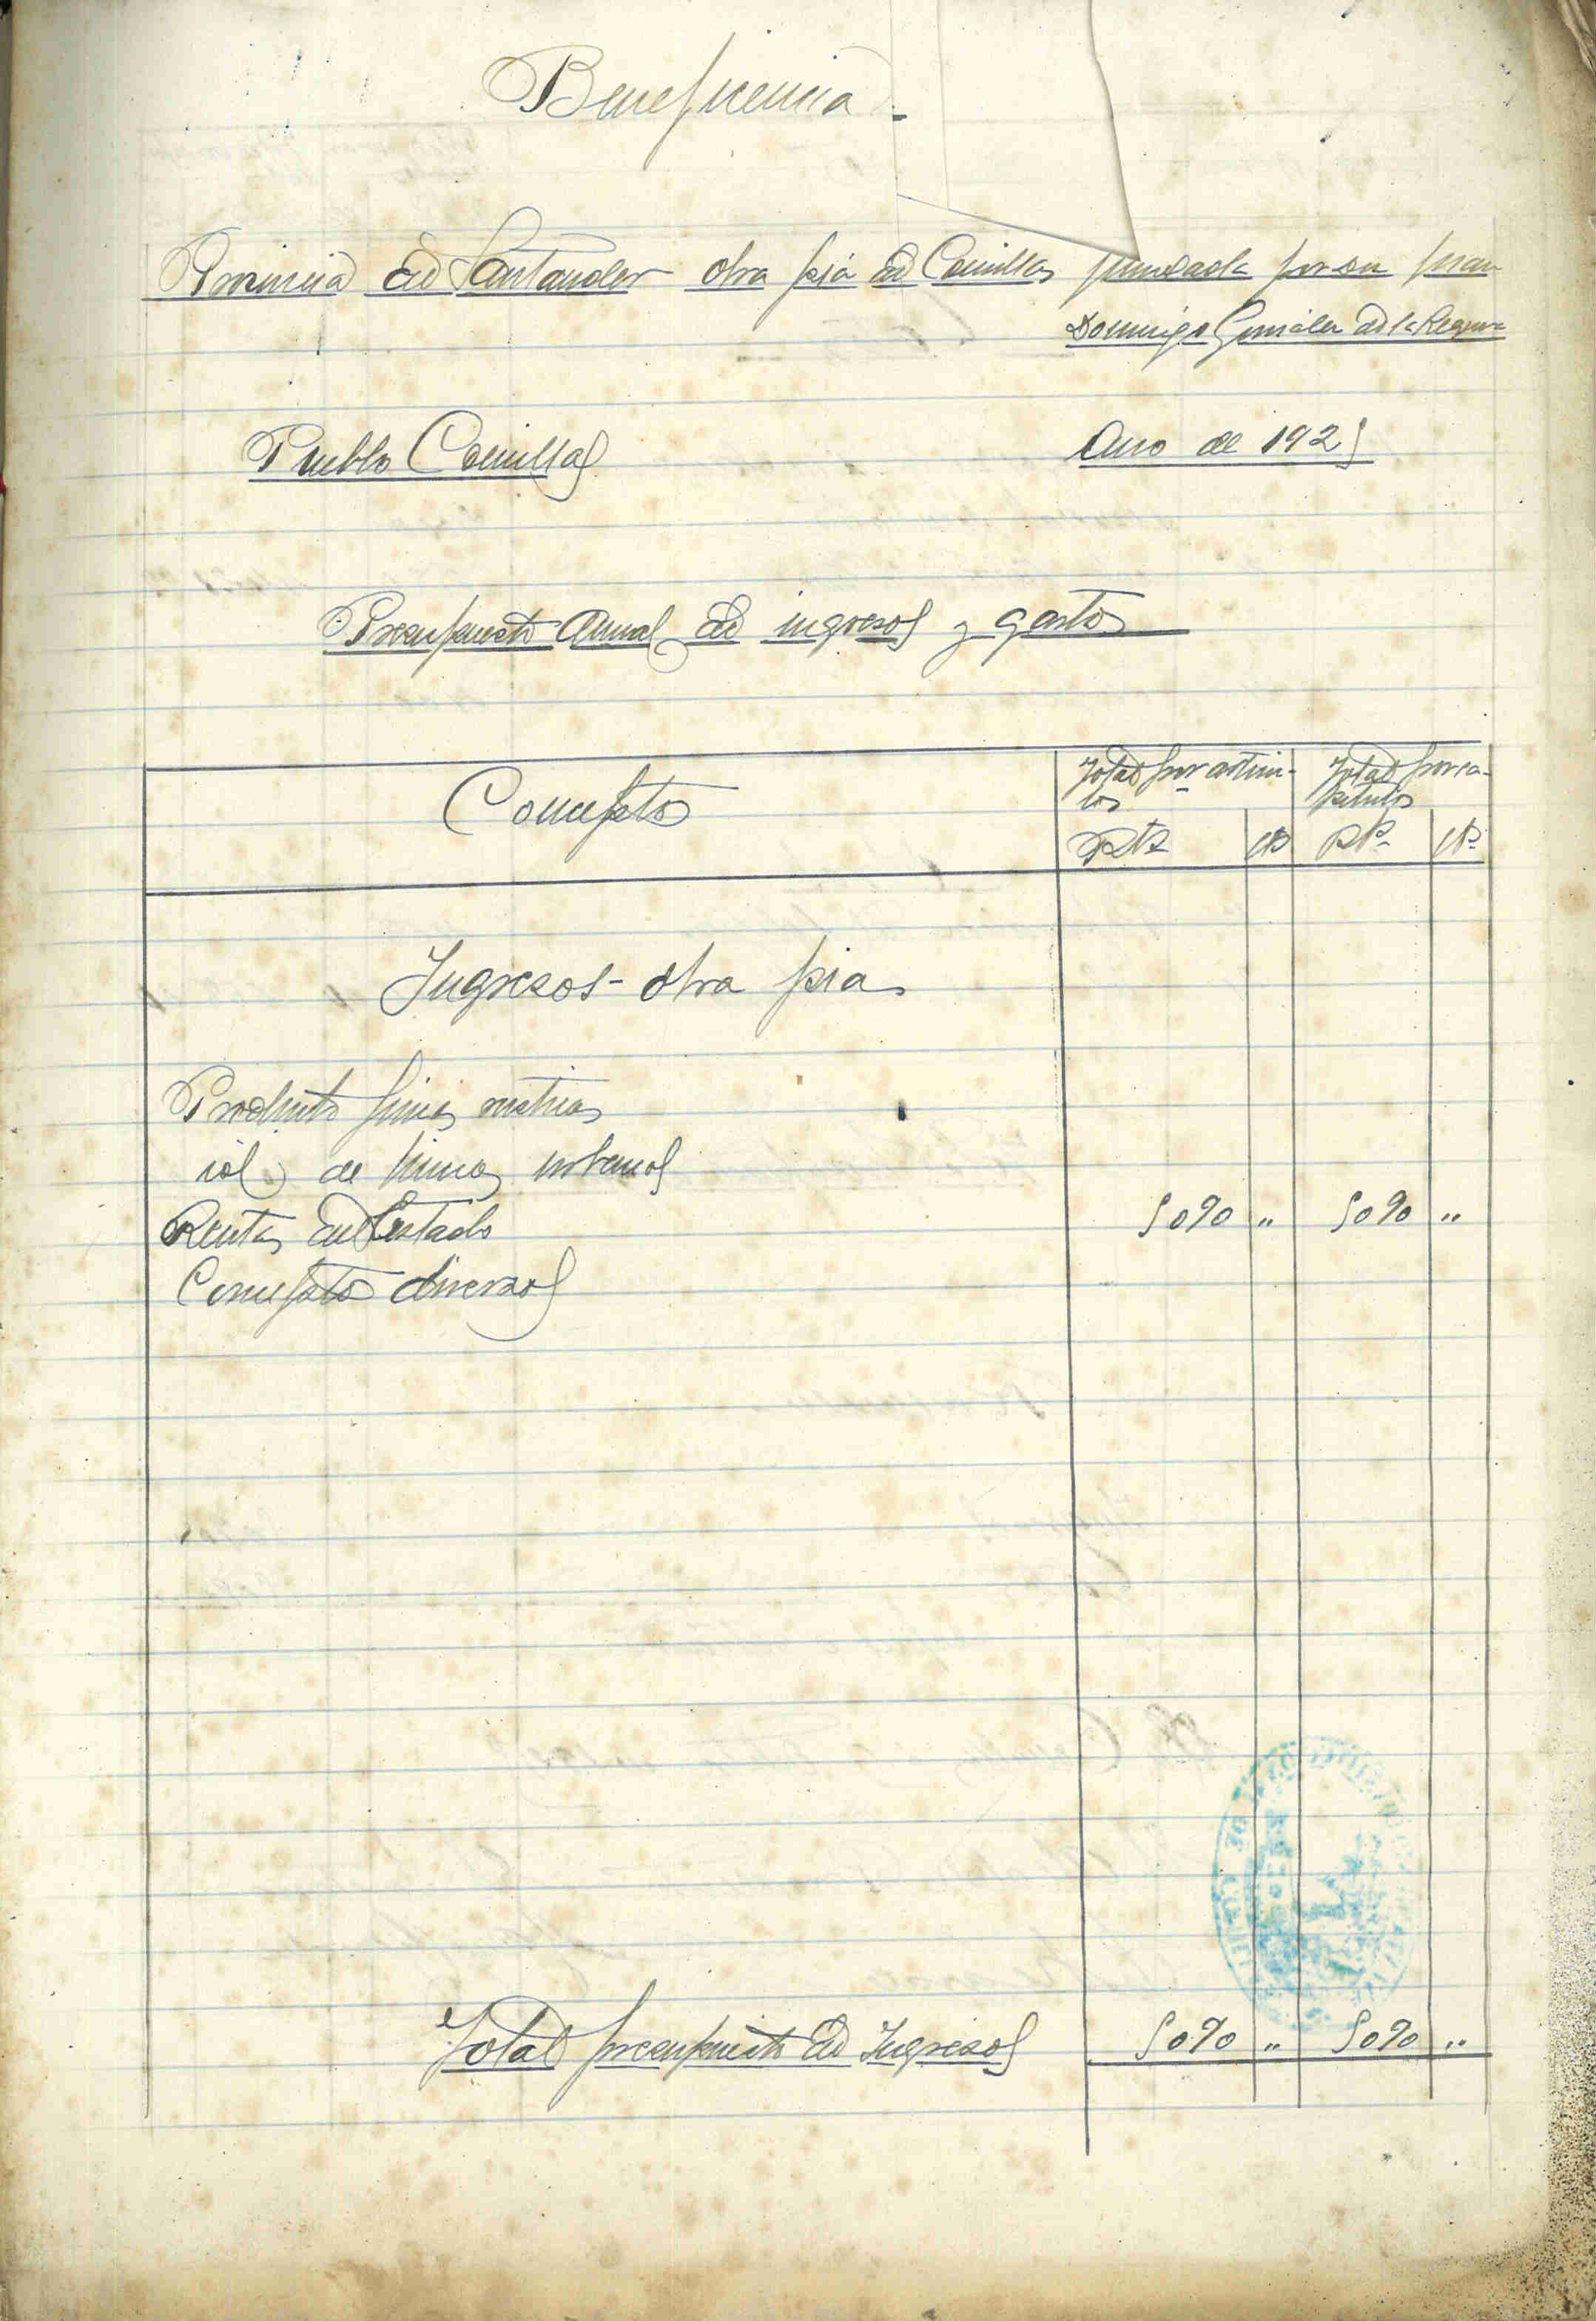 Beneficencia -
Provincia de Santander obra pia de Comillas fundada por Dn Juan
Domingo González de la Reguera
Pueblo Comillas
Año de 1925
Presupuesto Anual de ingresos y gastos
Concepto
Total por artícu-
los
Total por ca-
pítulos
Pts
Cts
Pts
Cts
Ingresos - obra pia
Producto fincas rusticas
id de fincas urbanas
Rentas del Estado
5090 " 5090 "
Conceptos diversos
Total presupuesto de Ingresos
5090 " 5090 "